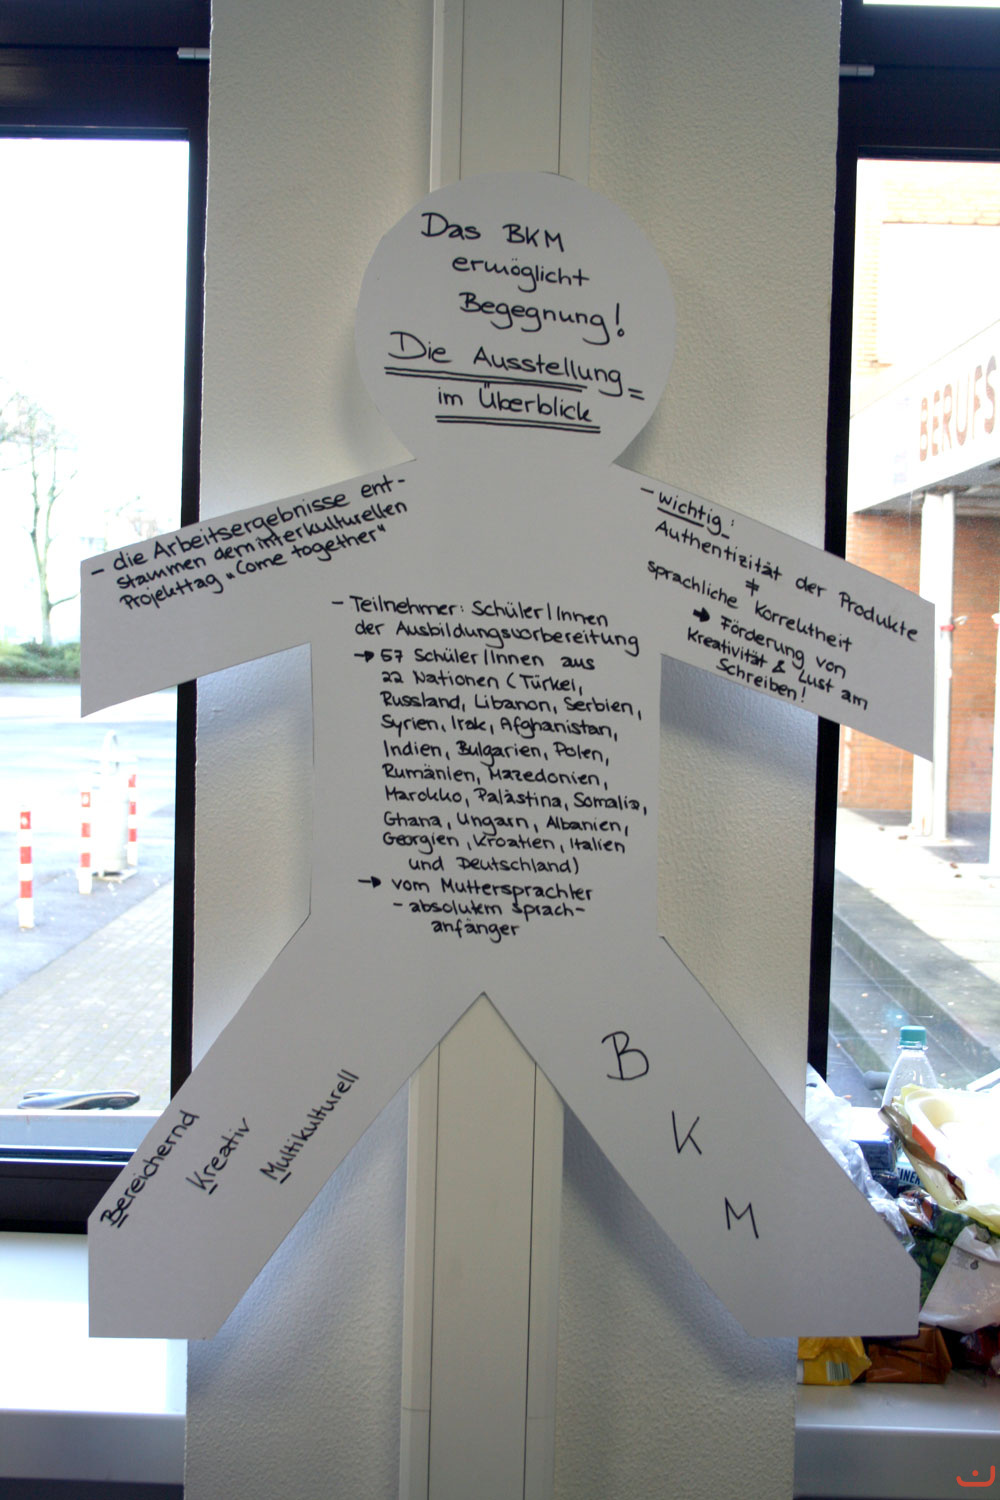 Das BKM
ermöglicht
Begegnung!
Die Ausstellung
im Überblick
- die Arbeitsergebnisse ent-
stammen dem interkulturellen
Projekttag „Come together“
- wichtig:
Authentizität der Produkte
≠
sprachliche Korrektheit
→ Förderung von
Kreativität & Lust am
Schreiben!
- Teilnehmer: Schüler/Innen
der Ausbildungsvorbereitung
→ 57 Schüler/Innen aus
22 Nationen (Türkei,
Russland, Libanon, Serbien,
Syrien, Irak, Afghanistan,
Indien, Bulgarien, Polen,
Rumänien, Mazedonien,
Marokko, Palästina, Somalia,
Ghana, Ungarn, Albanien,
Georgien, Kroatien, Italien
und Deutschland)
→ vom Muttersprachler
- absolutem Sprach-
anfänger
Bereichernd
Kreativ
Multikulturell
B
K
M
BERUFS